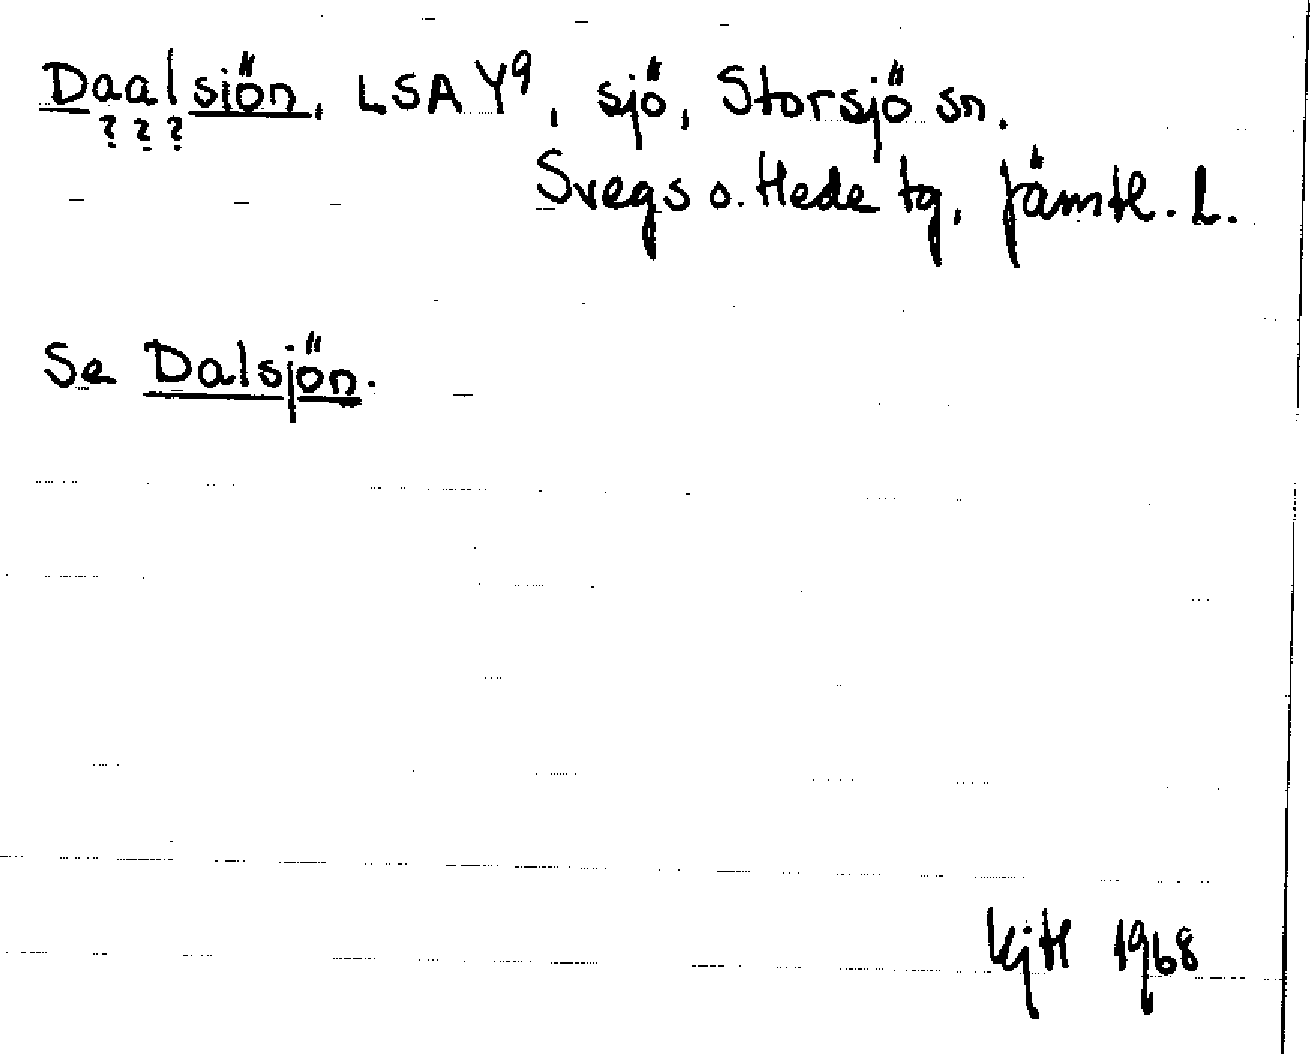 Daalsiön, LSA Y9, sjö, Storsjö sn.
? ? ?
Svegs o. Hede tg, Jämtl. L.
Se Dalsjön.
1968